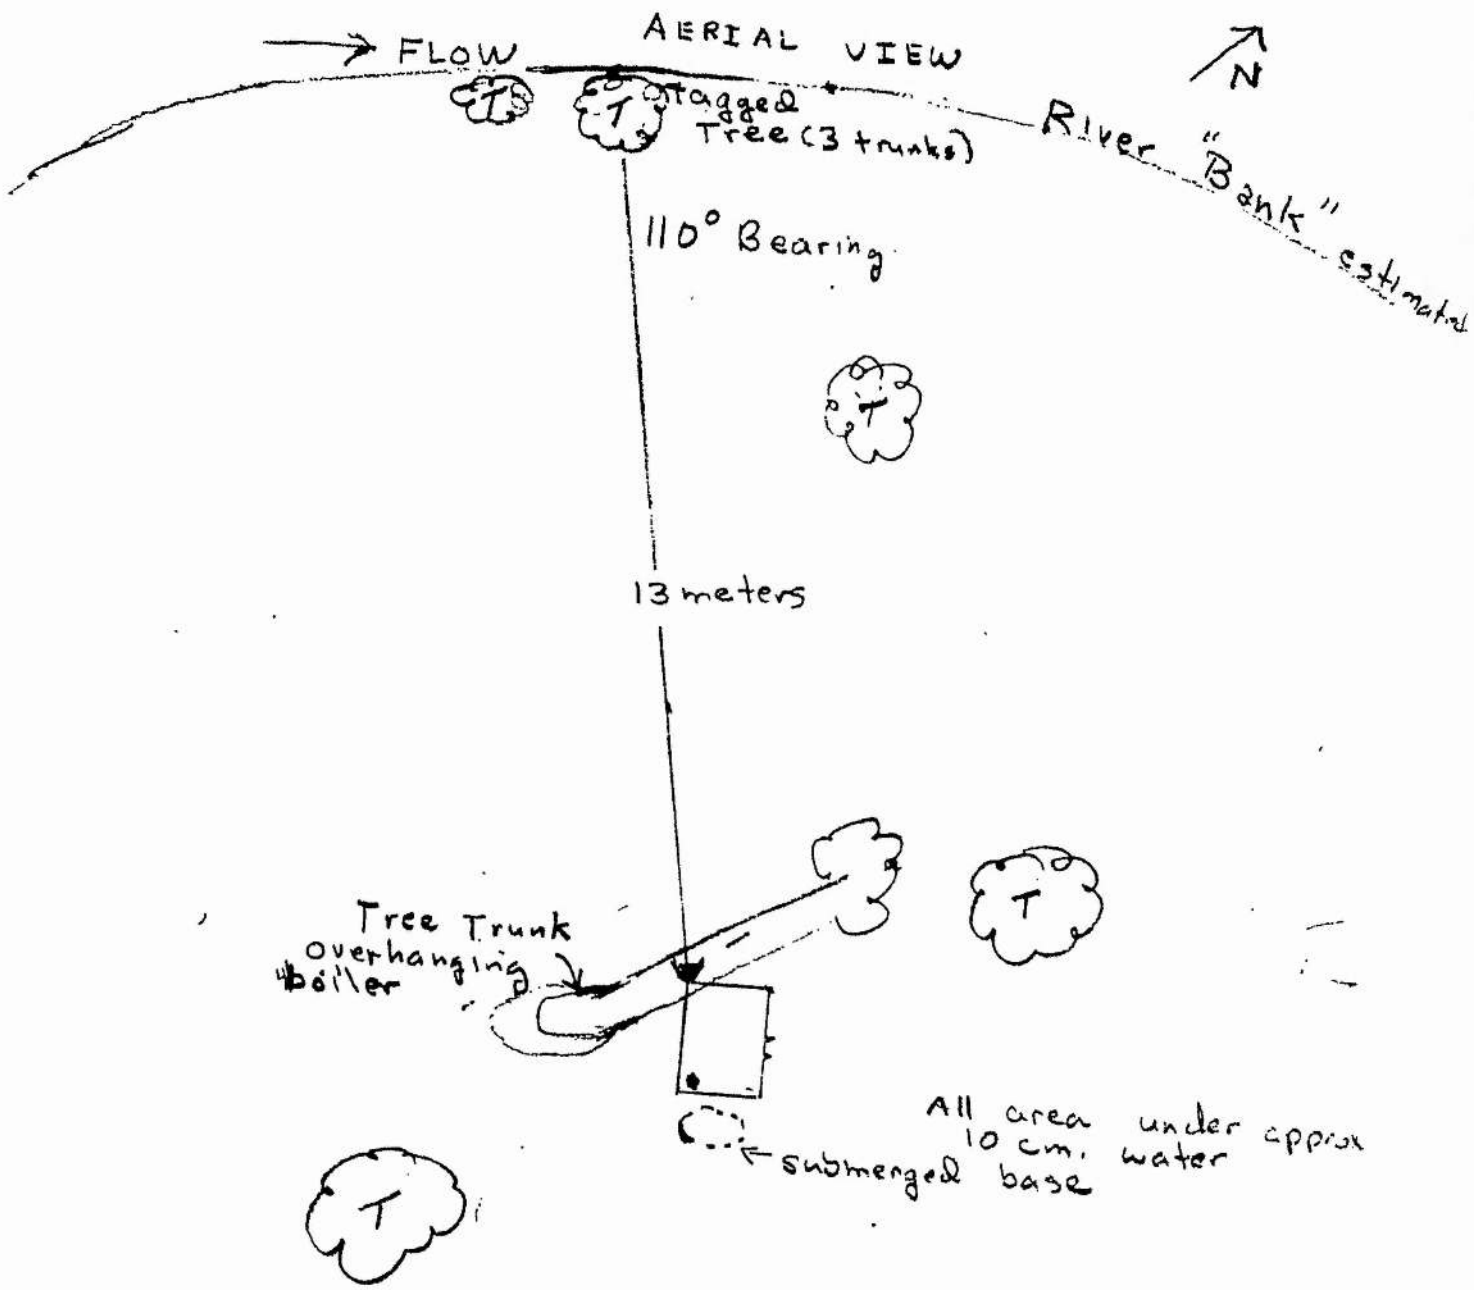 AERIAL VIEW
FLOW
N
T
T
tagged
Tree (3 trunks)
River "Bank" estimated
110° Bearing
T
13 meters
Tree Trunk
overhanging
"boiler
T
All area under approx
10 cm. water
submerged base
T